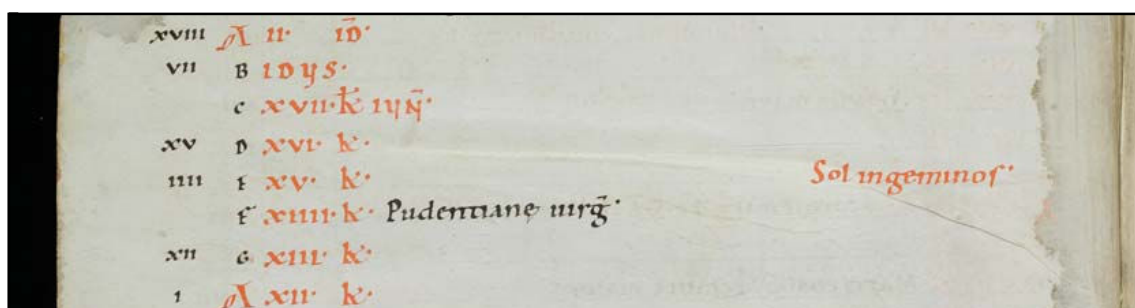 xviii A ii· id̄·
vii B idys·
c xvii· k̄ iyn̄·
xv D xvi· k·
iiii E xv· k· Sol ingeminos·
F xiiii· k· Pudentiane uirḡ·
xii G xiii· k·
i A xii· k·